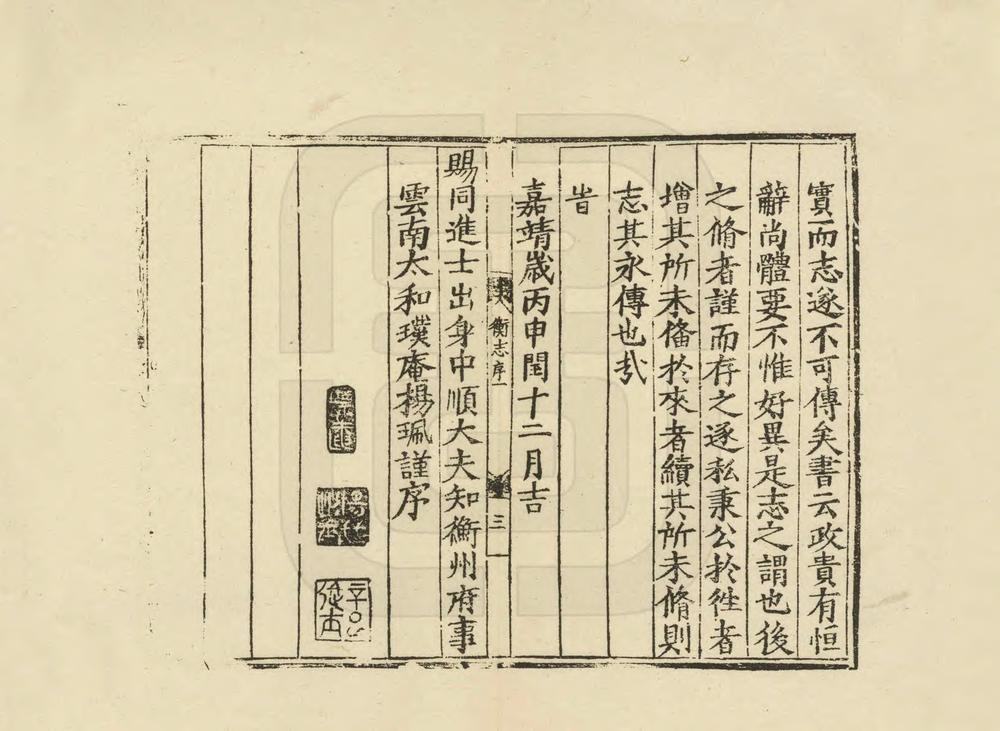 實而志遂不可傳矣書云政貴有恒
辭尚體要不惟好異是志之謂也後
之脩者謹而存之遂私秉公於徃者
增其所未偹於來者續其所未脩則
志其永傳也㢤
旹
嘉靖歲丙申閏十二月吉
衡志序
三
賜同進士出身中順大夫知衡州府事
雲南太和璞庵楊珮謹序